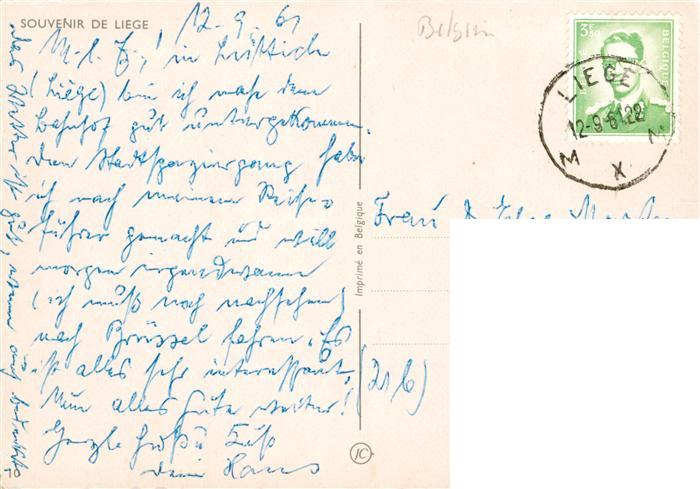 SOUVENIR DE LIEGE
12.9.61
Belgien
M. l. E.! in Lüttich
(Liège) bin ich nahe dem
Bahnhof gut untergekommen.
den Stadtspaziergang habe
ich nach meinem Reise-
führer gemacht und will
morgen irgendwann
(ich muß noch nachsehen)
nach Brüssel fahren. Es
ist alles sehr interessant.
Nun alles Gute weiter!
Herzl. Grüße Euch
dein Hans
das Wetter ist gut, wenn auch bedeckt
(21 b)
Frau
Imprimé en Belgique
3F50
BELGIQUE
LIEGE
12-9-61 22
M X M
JC